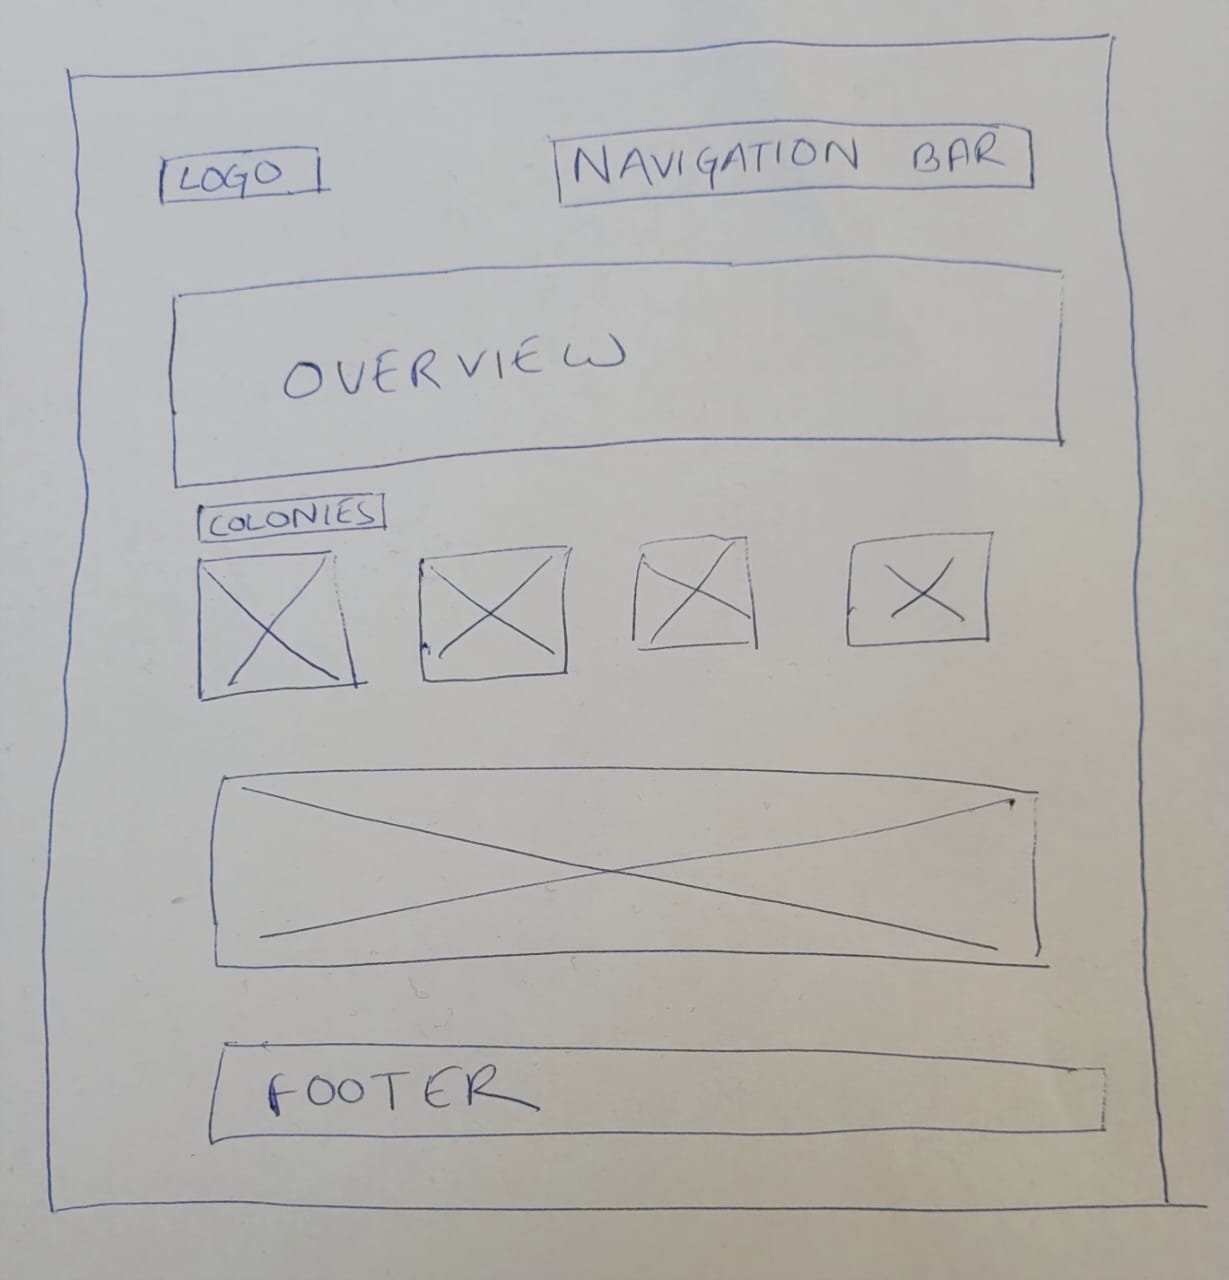 LOGO
NAVIGATION BAR
OVERVIEW
COLONIES
FOOTER